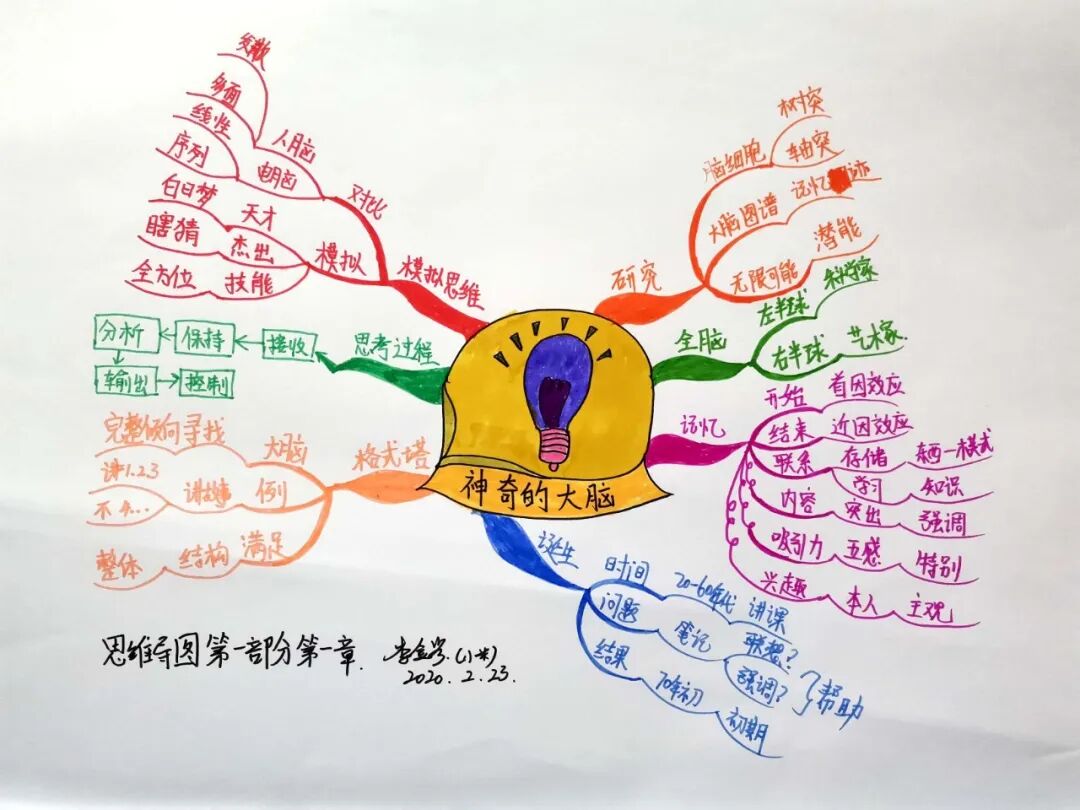 神奇的大脑
研究
脑细胞
树突
轴突
大脑图谱
记忆
迹
无限可能
潜能
全脑
左半球
科学家
右半球
艺术家
记忆
开始
首因效应
结束
近因效应
联系
存储
东西一模式
学习
知识
内容
突出
强调
吸引力
五感
特别
兴趣
本人
主观
诞生
时间
20-60年代
讲课
问题
笔记
联想?
强调?
帮助
结果
70年初
初期
格式塔
大脑
完整倾向寻找
例
讲故事
讲1.2.3
不4...
满足
结构
整体
思考过程
接收
保持
分析
输出
控制
模拟思维
对比
人脑
发散
多面
电脑
线性
序列
模拟
天才
白日梦
杰出
瞎猜
技能
全方位
思维导图第一部分第一章.
2020.2.23.